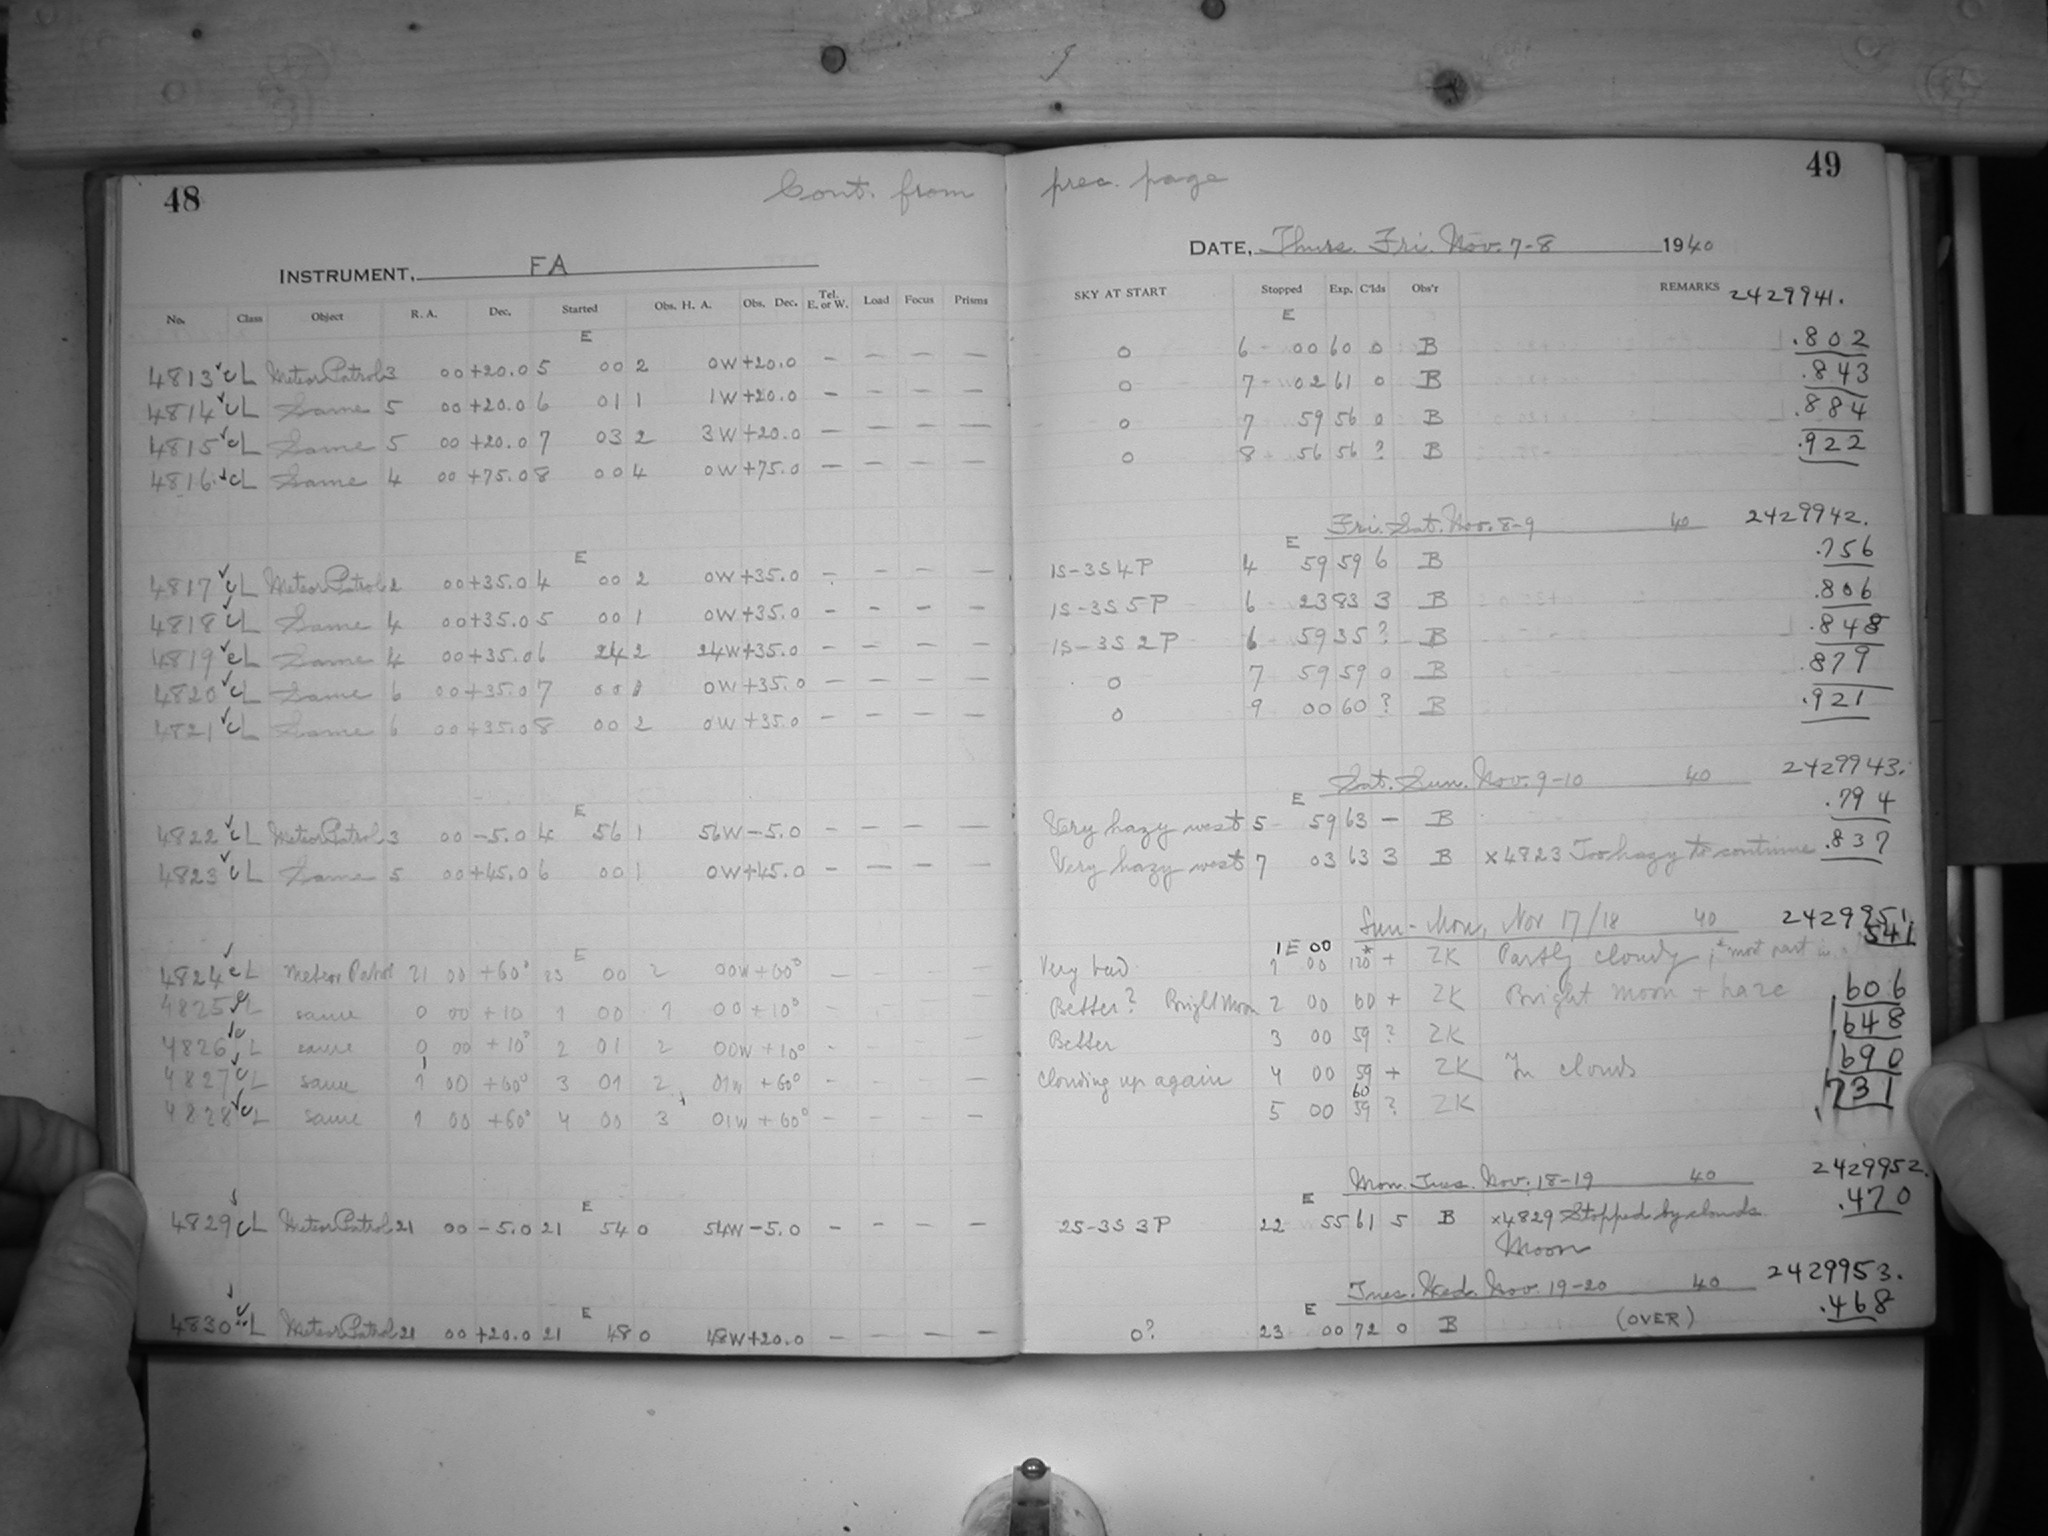 48
Cont. from prec. page
49
INSTRUMENT, FA
DATE, Thurs. Fri. Nov. 7-8 1940
No. Class Object R. A. Dec. Started Obs. H. A. Obs. Dec. Tel. E. or W. Load Focus Prisms SKY AT START Stopped Exp. C'lds Obs'r REMARKS 2429941.
E E
4813 ✓ c L Meteor Patrol 3 00 +20.0 5 00 2 0W +20.0 — — — — 0 6 00 60 0 B .802
4814 ✓ c L Same 5 00 +20.0 6 01 1 1W +20.0 — — — — 0 7 02 61 0 B .843
4815 ✓ c L Same 5 00 +20.0 7 03 2 3W +20.0 — — — — 0 7 59 56 0 B .884
4816 ✓ c L Same 4 00 +75.0 8 00 4 0W +75.0 — — — — 0 8 56 56 ? B .922
Fri. Sat. Nov. 8-9 40 2429942.
E E
4817 ✓ c L Meteor Patrol 2 00 +35.0 4 00 2 0W +35.0 — — — — 1S-3S4P 4 59 59 6 B .756
4818 ✓ c L Same 4 00 +35.0 5 00 1 0W +35.0 — — — — 1S-3S5P 6 23 83 3 B .806
4819 ✓ c L Same 4 00 +35.0 6 24 2 24W +35.0 — — — — 1S-3S2P 6 59 35 ? B .848
4820 ✓ c L Same 6 00 +35.0 7 00 0W +35.0 — — — — 0 7 59 59 0 B .879
4821 ✓ c L Same 6 00 +35.0 8 00 2 0W +35.0 — — — — 0 9 00 60 ? B .921
Sat. Sun. Nov. 9-10 40 2429943.
E E
4822 ✓ c L Meteor Patrol 3 00 -5.0 4 56 1 56W -5.0 — — — — Very hazy west 5 59 63 — B .794
4823 ✓ c L Same 5 00 +45.0 6 00 1 0W +45.0 — — — — Very hazy west 7 03 63 3 B x4823 Too hazy to continue .837
Sun-Mon, Nov 17/18 40 2429951.
E 1 E 00 .541
4824 ✓ c L Meteor Patrol 21 00 +60° 23 00 2 00W +60° — — — — Very bad 1 00 120* + ZK Partly cloudy; *most part in
4825 ✓ c L same 0 00 +10 1 00 1 00 +10° — — Better? Bright Moon 2 00 60 + ZK Bright moon + haze .606
4826 ✓ c L same 0 00 +10° 2 01 2 00W +10° — — — — Better 3 00 59 ? ZK .648
4827 ✓ c L same 1 00 +60° 3 01 2 01W +60° — — — — clouding up again 4 00 59 + ZK In clouds .690
4828 ✓ c L same 1 00 +60° 4 00 3 01W +60° — — — — 5 00 60 59 ? ZK .731
Mon. Tues. Nov. 18-19 40 2429952.
E E
4829 ✓ c L Meteor Patrol 21 00 -5.0 21 54 0 54W -5.0 — — — — 2S-3S3P 22 55 61 5 B x4829 Stopped by clouds .470
Moon
Tues. Wed. Nov. 19-20 40 2429953.
E E
4830 ✓ L Meteor Patrol 21 00 +20.0 21 48 0 48W +20.0 — — — — 0? 23 00 72 0 B (OVER) .468